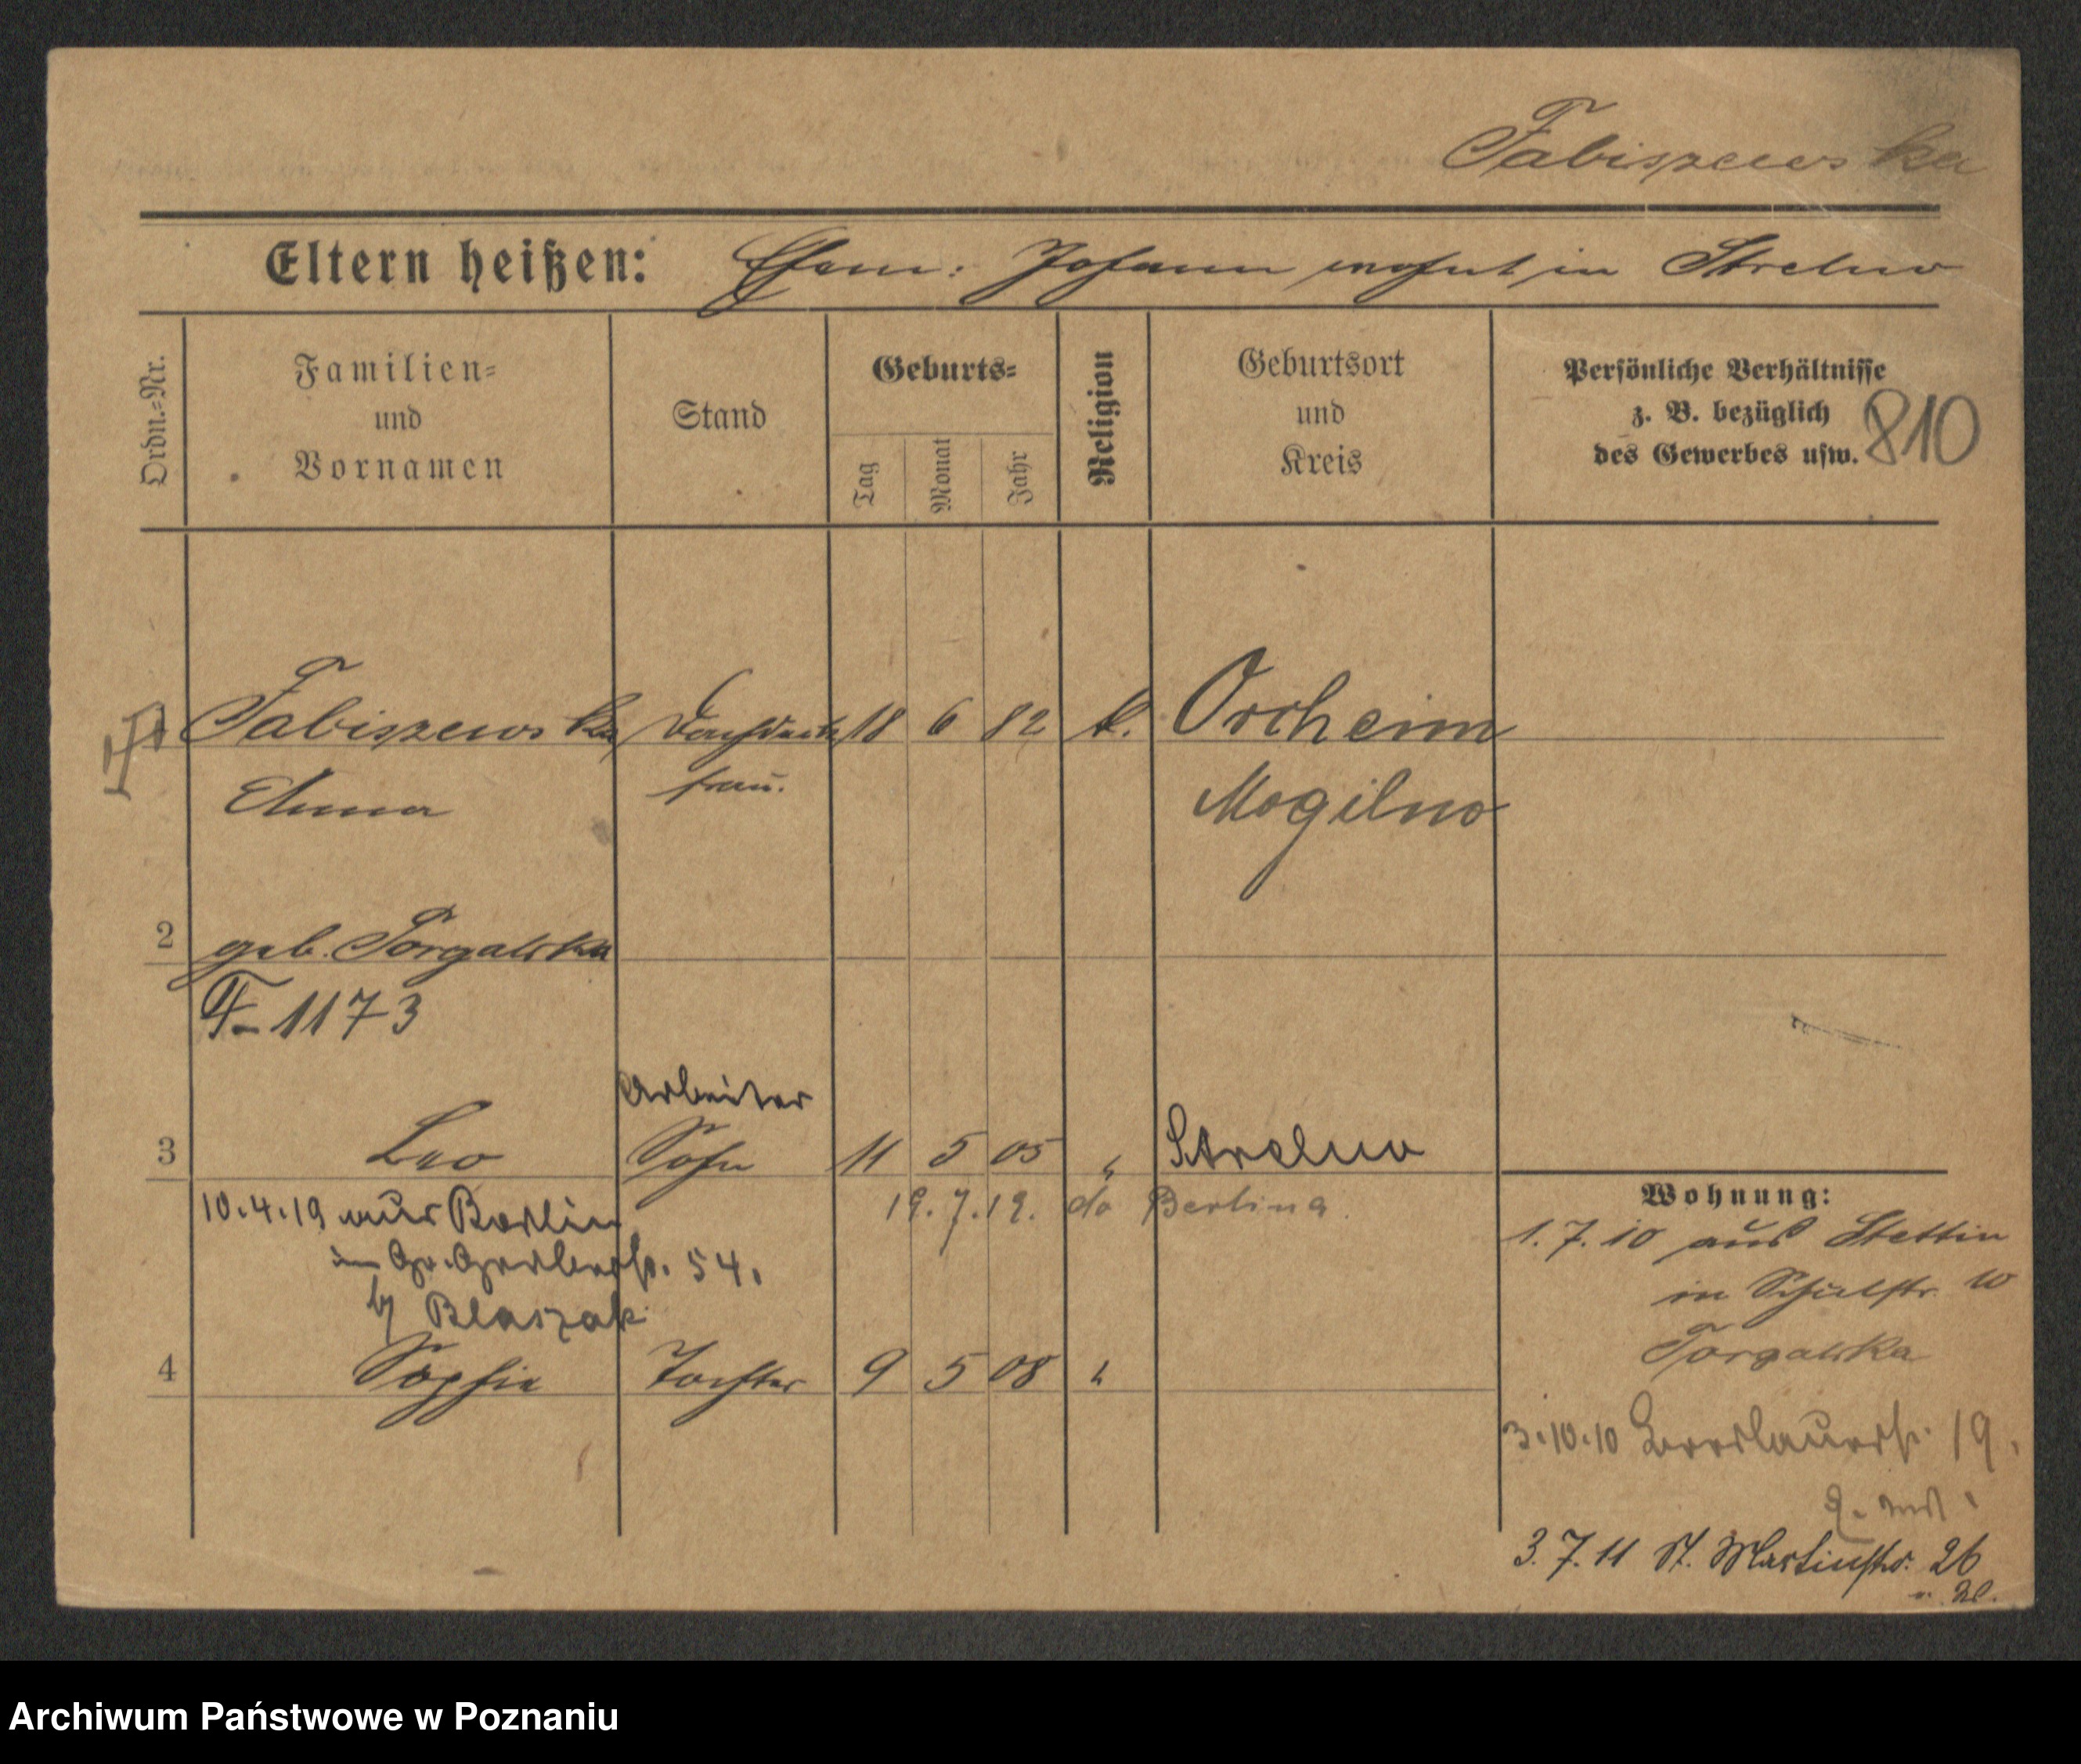 Fabiszewska
Eltern heißen: Ehem: Johann wohnt in Strelno
Ordn.=Nr.
Familien=
und
Vornamen
Stand
Geburts=
Tag
Monat
Jahr
Religion
Geburtsort
und
Kreis
Persönliche Verhältnisse
z. B. bezüglich
des Gewerbes usw.
810
1 Fabiszewska 18 6 82 k. Orcheim
frau. Mogilno
2 geb. Torgalska
F-1173
Arbeiter
3 Leo Sohn 11 5 05 " Strelno
10.4.19 aus Berlin 19.7.19. do Berlina.
in Gr. Gerberstr. 54.
b/ Blaszak
4 Sophie Tochter 9 5 08 "
Wohnung:
1.7.10 aus Stettin
in Schulstr. 10
Torgalska
3.10.10 19.
3.7.11 St. Martinstr. 26